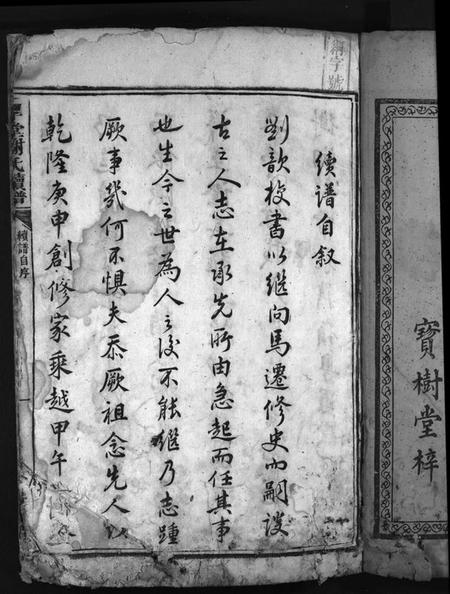 寶樹堂梓
續譜自叙
劉歆校書以繼向馬遷修史而嗣談
古之人志在承先所由急起而任其事
也生今之世為人之後不能繼乃志踵
厥事幾何不惧夫忝厥祖念先人以
乾隆庚申創修家乘越甲午
堂謝氏續譜
續譜自序
字號